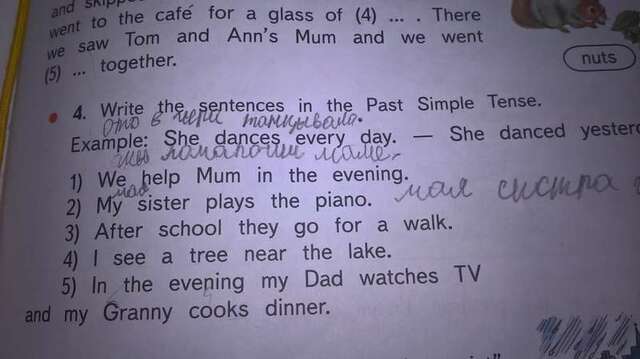 and skipp
went to the café for a glass of (4) ... . There
we saw Tom and Ann's Mum and we went
(5) ... together.
nuts
4. Write the sentences in the Past Simple Tense.
Example: She dances every day. — She danced yester
1) We help Mum in the evening.
2) My sister plays the piano.
моя систра
3) After school they go for a walk.
4) I see a tree near the lake.
5) In the evening my Dad watches TV
and my Granny cooks dinner.